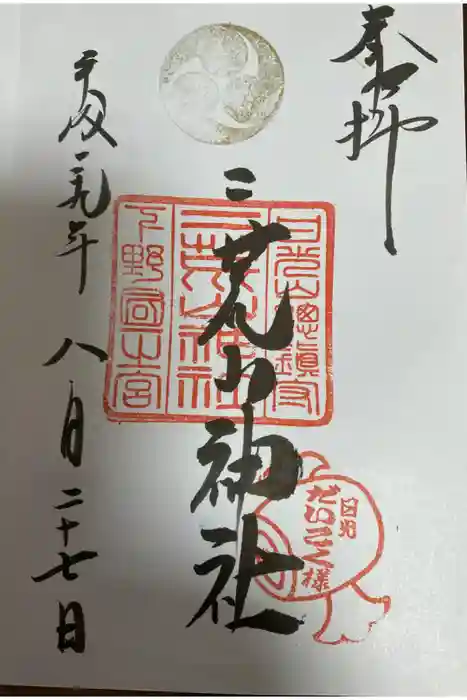 奉拝
日光山總鎮守
二荒山神社
下野國一之宮
二荒山神社
日光
だいこく様
平成二九年八月二十七日